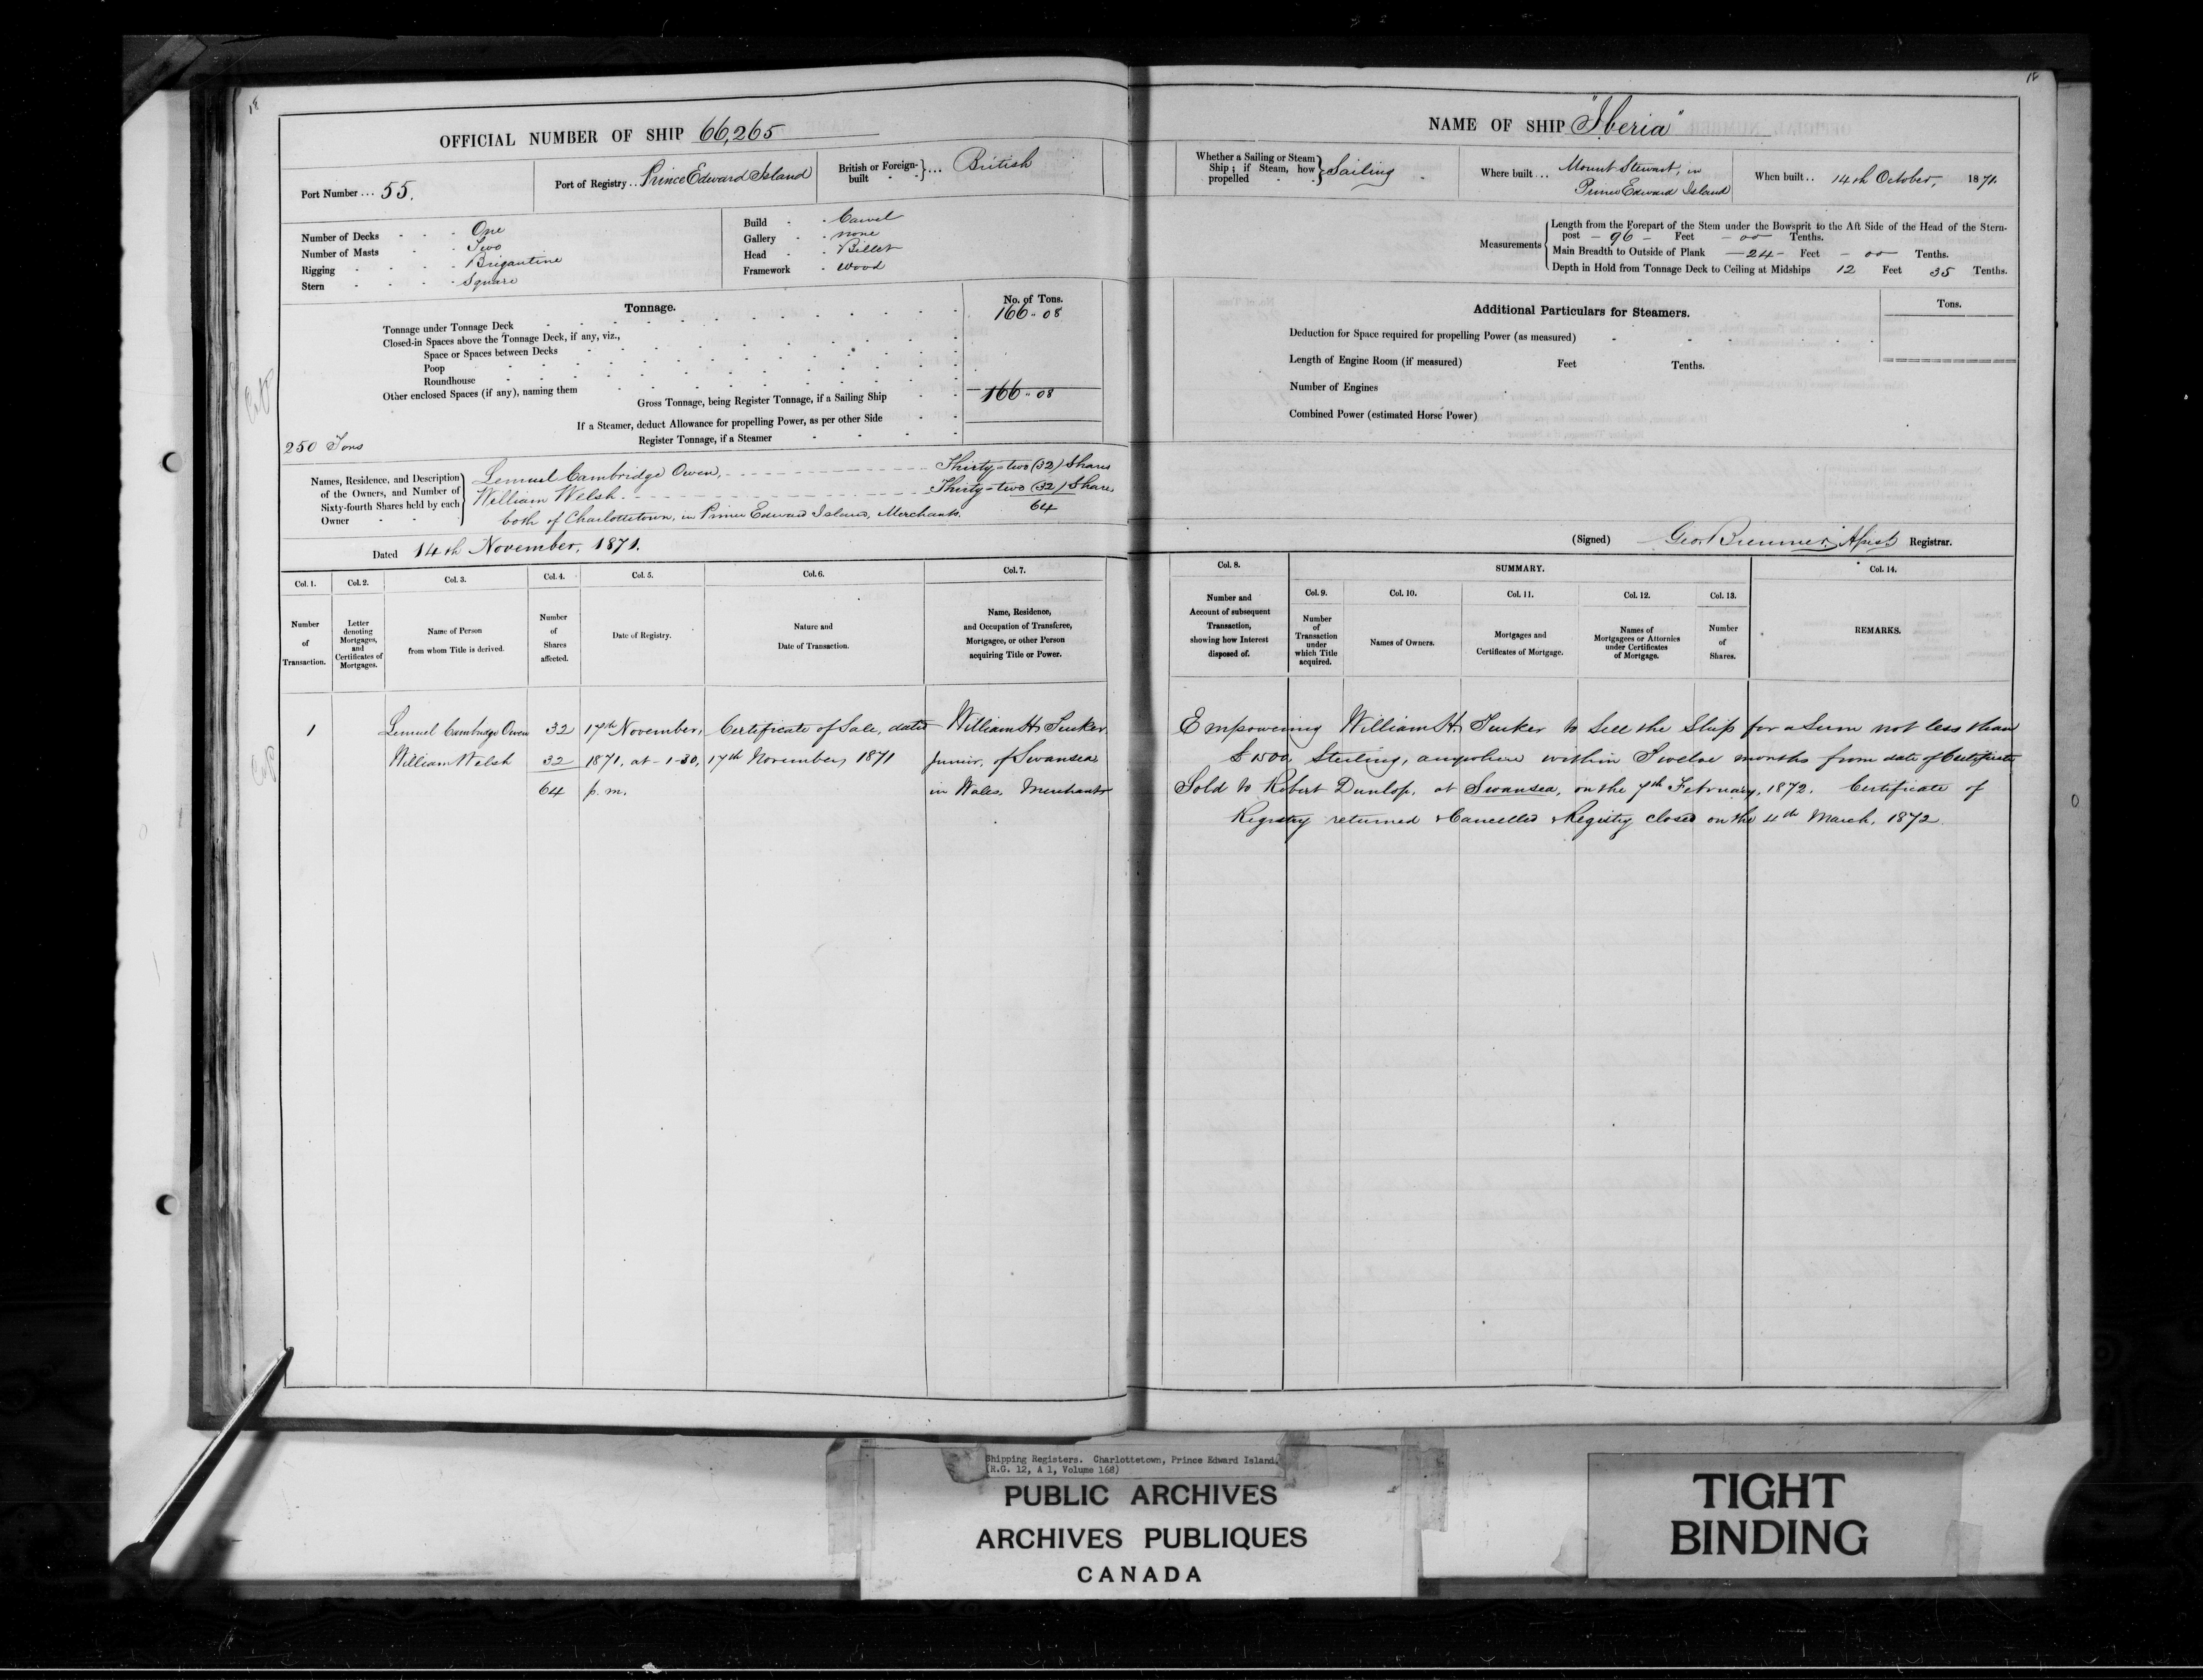 18
OFFICIAL NUMBER OF SHIP 66,265
Port Number ... 55.
Port of Registry .. Prince Edward Island
British or Foreign-built } ... British
Number of Decks - - - One
Number of Masts - - Two
Rigging - - - - Brigantine
Stern - - - - Square
Build - - Carvel
Gallery - - none
Head - - Billet
Framework - wood
Tonnage.
No. of Tons.
Tonnage under Tonnage Deck 166 .. 08
Closed-in Spaces above the Tonnage Deck, if any, viz.,
Space or Spaces between Decks
Poop
Roundhouse
Other enclosed Spaces (if any), naming them
Gross Tonnage, being Register Tonnage, if a Sailing Ship 166 .. 08
If a Steamer, deduct Allowance for propelling Power, as per other Side
Register Tonnage, if a Steamer
250 Tons
Names, Residence, and Description of the Owners, and Number of Sixty-fourth Shares held by each Owner
Lemuel Cambridge Owen, Thirty-two (32) Shares
William Welsh Thirty-two (32) Shares
both of Charlottetown, in Prince Edward Island, Merchants. 64
Dated 14th November, 1871.
Col. 1. Col. 2. Col. 3. Col. 4. Col. 5. Col. 6. Col. 7.
Number of Transaction.
Letter denoting Mortgages, and Certificates of Mortgages.
Name of Person from whom Title is derived.
Number of Shares affected.
Date of Registry.
Nature and Date of Transaction.
Name, Residence, and Occupation of Transferee, Mortgagee, or other Person acquiring Title or Power.
1 Lemuel Cambridge Owen 32 17th November, Certificate of Sale, dated William H. Tucker
William Welsh 32 1871, at 1-30, 17th November, 1871 Junior, of Swansea
64 p.m. in Wales, Merchant
18
NAME OF SHIP "Iberia"
Whether a Sailing or Steam Ship; if Steam, how propelled } Sailing
Where built ... Mount Stewart, in
Prince Edward Island
When built .. 14th October, 1871.
Measurements
Length from the Forepart of the Stem under the Bowsprit to the Aft Side of the Head of the Stern-
post - 96 - Feet - 00 - Tenths.
Main Breadth to Outside of Plank - 24 - Feet - 00 - Tenths.
Depth in Hold from Tonnage Deck to Ceiling at Midships 12 Feet 35 Tenths.
Additional Particulars for Steamers.
Tons.
Deduction for Space required for propelling Power (as measured)
Length of Engine Room (if measured) Feet Tenths.
Number of Engines
Combined Power (estimated Horse Power)
(Signed) Geo. Bremner, Registrar.
Col. 8. SUMMARY. Col. 14.
Col. 9. Col. 10. Col. 11. Col. 12. Col. 13.
Number and Account of subsequent Transaction, showing how Interest disposed of.
Number of Transaction under which Title acquired.
Names of Owners.
Mortgages and Certificates of Mortgage.
Names of Mortgagees or Attornies under Certificates of Mortgage.
Number of Shares.
REMARKS.
Empowering William H. Tucker to Sell the Ship for a Sum not less than
£1500 Sterling, anywhere within Twelve months from date of Certificate
Sold to Robert Dunlop, at Swansea, on the 7th February, 1872. Certificate of
Registry returned & Cancelled & Registry closed on the 4th March, 1872.
Shipping Registers. Charlottetown, Prince Edward Island.
(R.G. 12, A 1, Volume 168)
PUBLIC ARCHIVES
ARCHIVES PUBLIQUES
CANADA
TIGHT
BINDING